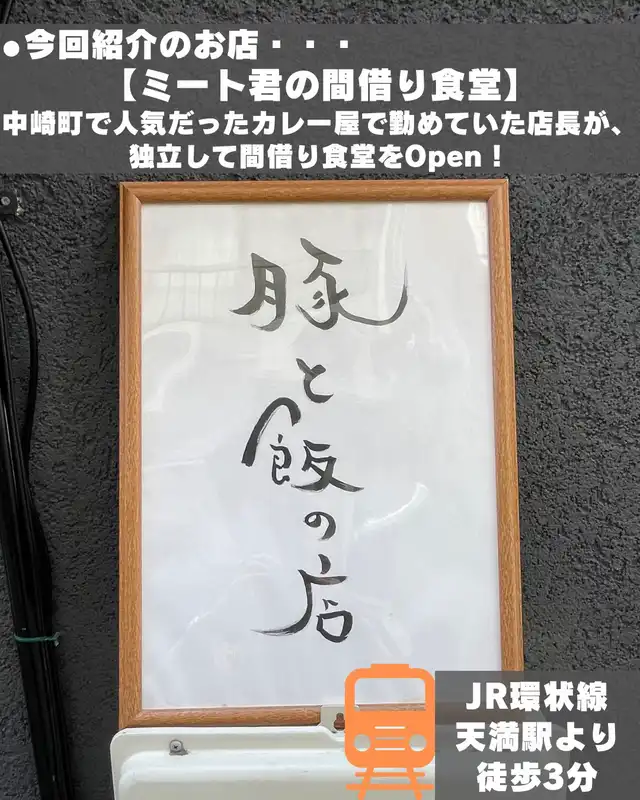 ●今回紹介のお店・・・
【ミート君の間借り食堂】
中崎町で人気だったカレー屋で勤めていた店長が、
独立して間借り食堂をOpen！
豚
と
飯
の
店
JR環状線
天満駅より
徒歩3分